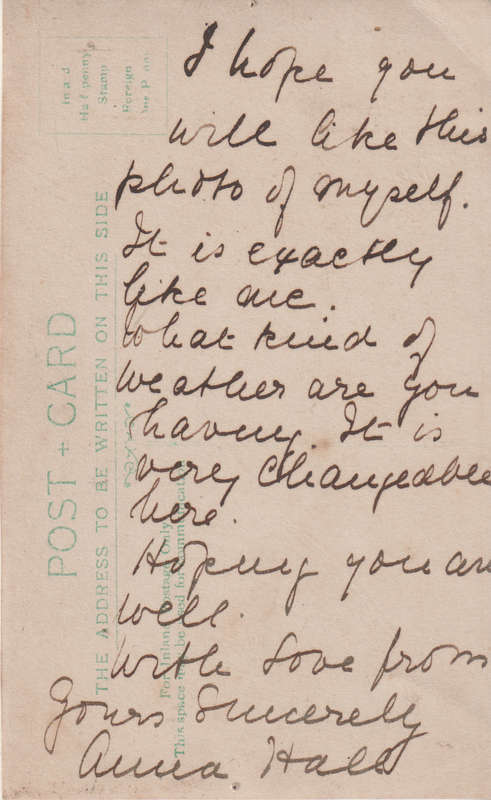 I hope you
will like this
photo of myself.
It is exactly
like me.
What kind of
weather are you
having. It is
very changeable
here.
Hoping you are
well.
With love from
Yours Sincerely
Anna Hall
POST + CARD
THE ADDRESS TO BE WRITTEN ON THIS SIDE
For Inland Postage only
This space may be used for communication
Inland
Halfpenny
Stamp
Foreign
One Penny